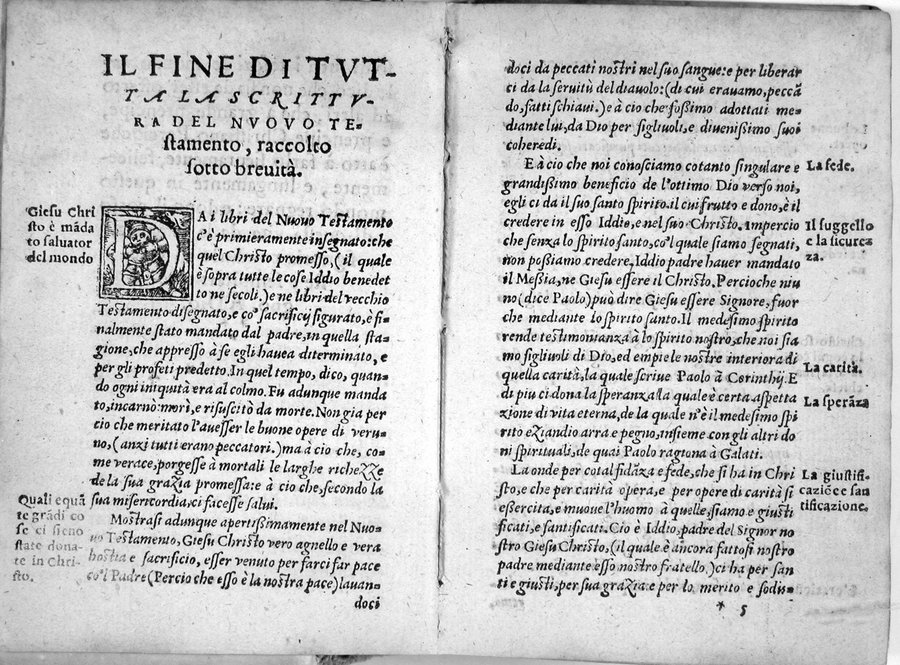 IL FINE DI TVT-
TA LA SCRITTV-
RA DEL NVOVO TE-
stamento, raccolto
sotto breuità.
Giesu Chri
sto è mãda
to saluator
del mondo
DAi libri del Nuouo Testamento
c'è primieramente insegnato: che
quel Christo promesso, (il quale
è sopra tutte le cose Iddio benedet
to ne secoli.) e ne libri del vecchio
Testamento disegnato, e co' sacrificij figurato, è fi-
nalmente stato mandato dal padre, in quella sta-
gione, che appresso à se egli hauea diterminato, e
per gli profeti predetto. In quel tempo, dico, quan-
do ogni iniquità era al colmo. Fù adunque manda
to, incarnò: morì, e risuscitò da morte. Non gia per
cio che meritato l'auesser le buone opere di veru-
no, (anzi tutti erano peccatori.) ma à cio che, co-
me verace, porgesse à mortali le larghe richezze
de la sua grazia promessa: e à cio che, secondo la
sua misericordia, ci facesse salui.
Quali e quã
te grãdi co
se ci sieno
state dona-
te in Chri-
sto.
Mostrasi adunque apertissimamente nel Nuo-
uo Testamento, Giesu Christo vero agnello e vera
hostia e sacrificio, esser venuto per farci far pace
co'l Padre (Percio che esso è la nostra pace) lauan-
doci
doci da peccati nostri nel suo sangue: e per liberar
ci da la seruitù del diauolo: (di cui erauamo, peccã
do, fatti schiaui.) e à cio che fossimo adottati me-
diante lui, da Dio per figliuoli, e diuenissimo suoi
coheredi.
E à cio che noi conosciamo cotanto singulare e
grandissimo beneficio de l'ottimo Dio verso noi,
egli ci da il suo santo spirito. il cui frutto e dono, è il
credere in esso Iddio, e nel suo Christo. Impercio
che senza lo spirito santo, co'l quale siamo segnati,
non possiamo credere, Iddio padre hauer mandato
il Messia, ne Giesu essere il Christo. Percioche niu
no (dice Paolo) può dire Giesu essere Signore, fuor
che mediante lo spirito santo. Il medesimo spirito
rende testimonianza à lo spirito nostro, che noi sia
mo figliuoli di Dio, ed empie le nostre interiora di
quella carità, la quale scriue Paolo à Corinthij. E
di piu ci dona la speranza, la quale è certa aspetta
zione di vita eterna, de la quale n'è il medesimo spi
rito eziandio arra e pegno, insieme con gli altri do
ni spirituali, de quai Paolo ragiona à Galati.
La onde per cotal fidãza e fede, che si ha in Chri
sto, e che per carità opera, e per opere di carità si
essercita, e muoue l'huomo à quelle, siamo e giusti
ficati, e santificati. Cio è Iddio, padre del Signor no
stro Giesu Christo, (il quale è àncora fattosi nostro
padre mediante esso nostro fratello.) ci ha per san
ti e giusti, per sua grazia: e per lo merito e sodis-
La fede.
Il suggello
e la sicurez
za.
La carità.
La sperãza
La giustifi-
caziõe e san
tificazione.
* 5